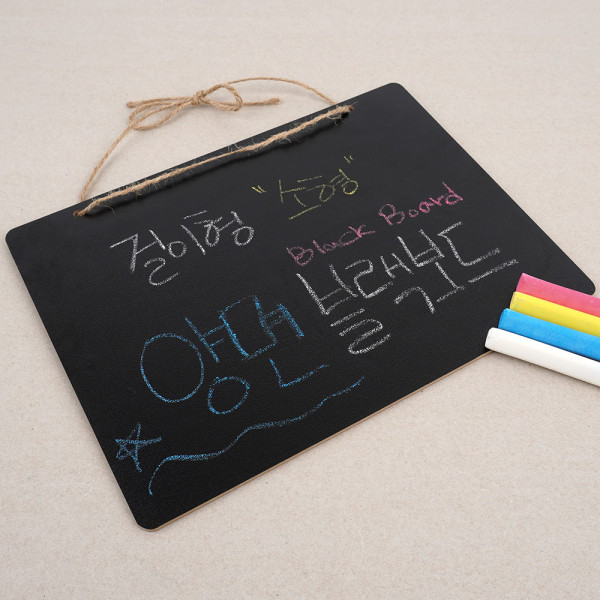 걸이형 "소형"
Black Board
양면 블랙보드